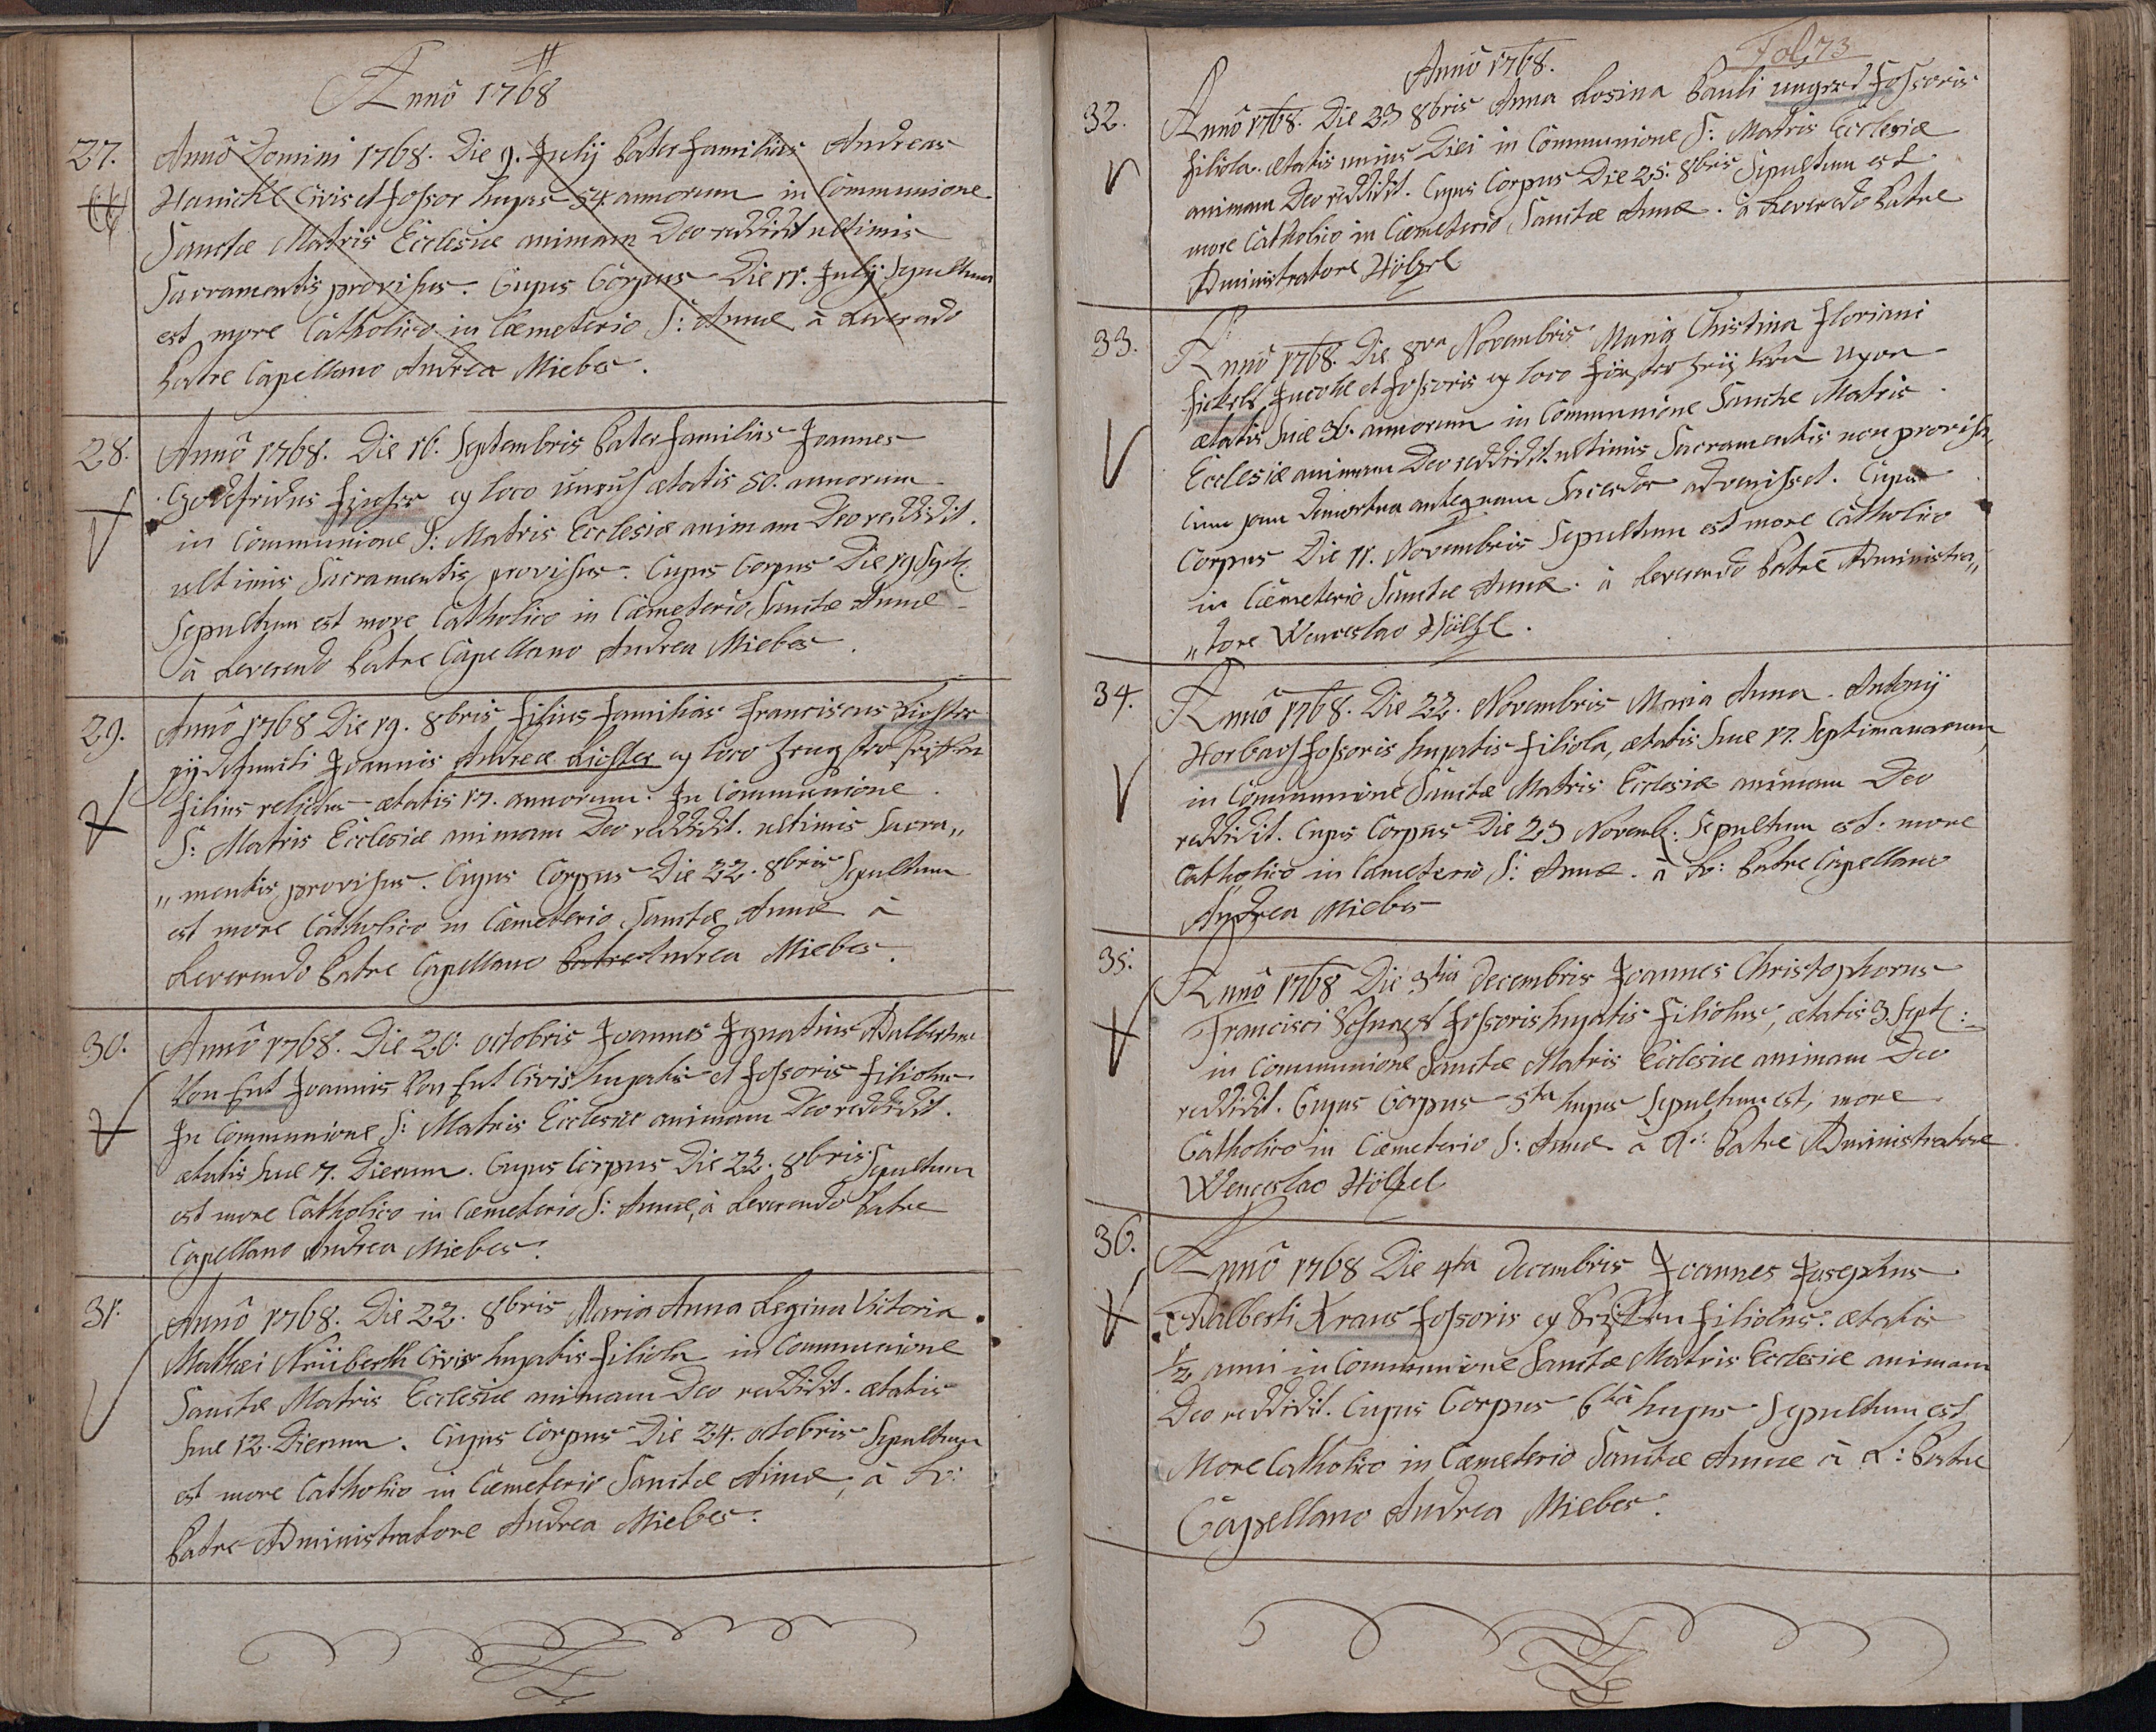 Annô 1768
27. Annô Domini 1768. Die 9. Julij Pater familias Andreas
Hanickl Civis et fossor hujas 54 annorum in Communione
Sanctæ Matris Ecclesiæ animam Deo reddidit ultimis
Sacramentis provisus. Cujus Corpus Die 11. Julij Sepultum
est more Catholico in Cæmeterio S: Annæ à Reverendo
Patre Capellano Andrea Miebes.
28. Annô 1768. Die 16. Septembris Pater familias Joannes
Godefridus ex loco ætatis 50. annorum
in Communione S: Matris Ecclesiæ animam Deo reddidit.
ultimis Sacramentis provisus. Cujus Corpus Die 19 Sept.
Sepultum est more Catholico in Cæmeterio Sanctæ Annæ
à Reverendo Patre Capellano Andrea Miebes.
29. Annô 1768 Die 19. 8bris filius familias Franciscus Richter
pij defuncti Joannis Andreæ Richter ex loco
filius relictus ætatis 17. annorum. In Communione
S: Matris Ecclesiæ animam Deo reddidit. ultimis Sacra„
„mentis provisus. Cujus Corpus Die 22. 8bris Sepultum
est more Catholico in Cæmeterio Sanctæ Annæ à
Reverendo Patre Capellano Patre Andrea Miebes.
30. Annô 1768. Die 20. octobris Joannes Ignatius Adalbertus
Von Ent Joannis Von Ent Civis hujatis et fossoris filiolus
In Communione S: Matris Ecclesiæ animam Deo reddidit.
ætatis suæ 7. Dierum. Cujus Corpus Die 22. 8bris Sepultum
est more Catholico in Cæmeterio S: Annæ, à Reverendo Patre
Capellano Andrea Miebes.
31. Annô 1768. Die 22. 8bris Maria Anna Regina Victoria
Mathæi Nüberth Civis hujatis filiola in Communione
Sanctæ Matris Ecclesiæ animam Deo reddidit. ætatis
suæ 12. Dierum. Cujus Corpus Die 24. octobris Sepultum
est more Catholico in Cæmeterio Sanctæ Annæ, à R:
Patre Administratore Andrea Miebes.
Fol 73
Annô 1768.
32. Annô 1768. Die 23 8bris Anna Rosina Pauli ungerd fossoris
filiola. ætatis unius Diei in Communione S: Matris Ecclesiæ
animam Deo reddidit. Cujus Corpus Die 25. 8bris Sepultum est
more Catholico in Cæmeterio Sanctæ Annæ. à Reverendo Patre
Administratore Hölzel
33. Annô 1768. Die 8va Novembris Maria Christina Floriani
et fossoris ex loco uxor
ætatis suæ 36. annorum in Communione Sanctæ Matris
Ecclesiæ animam Deo reddidit. ultimis Sacramentis non provisa,
cum jam demortua antequam Sacerdos advenisset. Cujus
Corpus Die 11. Novembris Sepultum est more Catholico
in Cæmeterio Sanctæ Annæ. à Reverendo Patre Administra„
„tore Wenceslao Hölzel.
34. Annô 1768. Die 22. Novembris Maria Anna. Antonij
Horbach fossoris hujatis filiola, ætatis suæ 17. Septimanarum
in Communione Sanctæ Matris Ecclesiæ animam Deo
reddidit. Cujus Corpus Die 23 Novemb. Sepultum est. more
Catholico in Cæmeterio S: Annæ. à R: Patre Capellano
Andrea Miebes
35. Annô 1768 Die 3tia Decembris Joannes Christophorus
Francisci fossoris hujatis filiolus, ætatis 3 Sept:
in Communione Sanctæ Matris Ecclesiæ animam Deo
reddidit. Cujus Corpus 5ta hujus Sepultum est, more
Catholico in Cæmeterio S: Annæ à R: Patre Administratore
Wenceslao Hölzel
36. Annô 1768 Die 4ta Decembris Joannes Josephus
Adalberti Kraus fossoris ex filiolus. ætatis
1/2 anni in Communione Sanctæ Matris Ecclesiæ animam
Deo reddidit. Cujus Corpus 6ta hujus Sepultum est
More Catholico in Cæmeterio Sanctæ Annæ à R: Patre
Capellano Andrea Miebes.